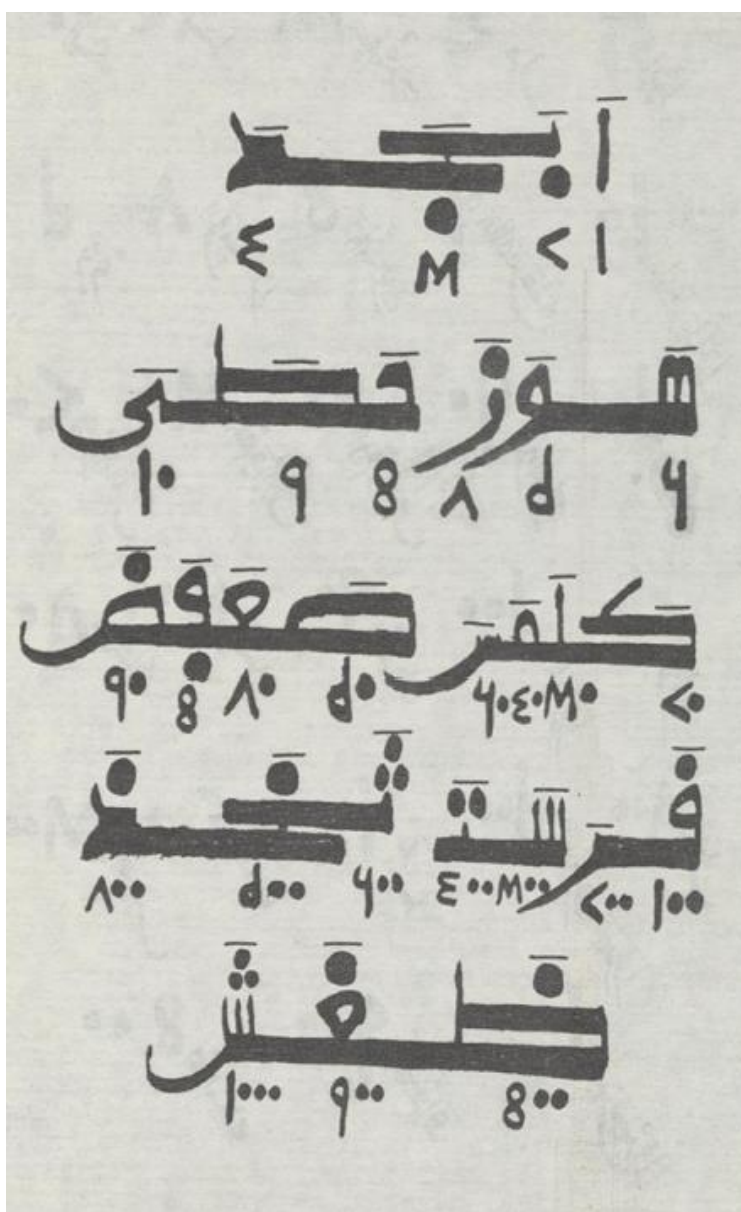 أبجد
١ ٢ ٣ ٤
هوز حطي
٥ ٦ ٧ ٨ ٩ ١٠
كلمن صعفض
٢٠ ٣٠ ٤٠ ٥٠ ٦٠ ٧٠ ٨٠ ٩٠
قرست ثخذ
١٠٠ ٢٠٠ ٣٠٠ ٤٠٠ ٥٠٠ ٦٠٠ ٧٠٠
ظغش
٨٠٠ ٩٠٠ ١٠٠٠